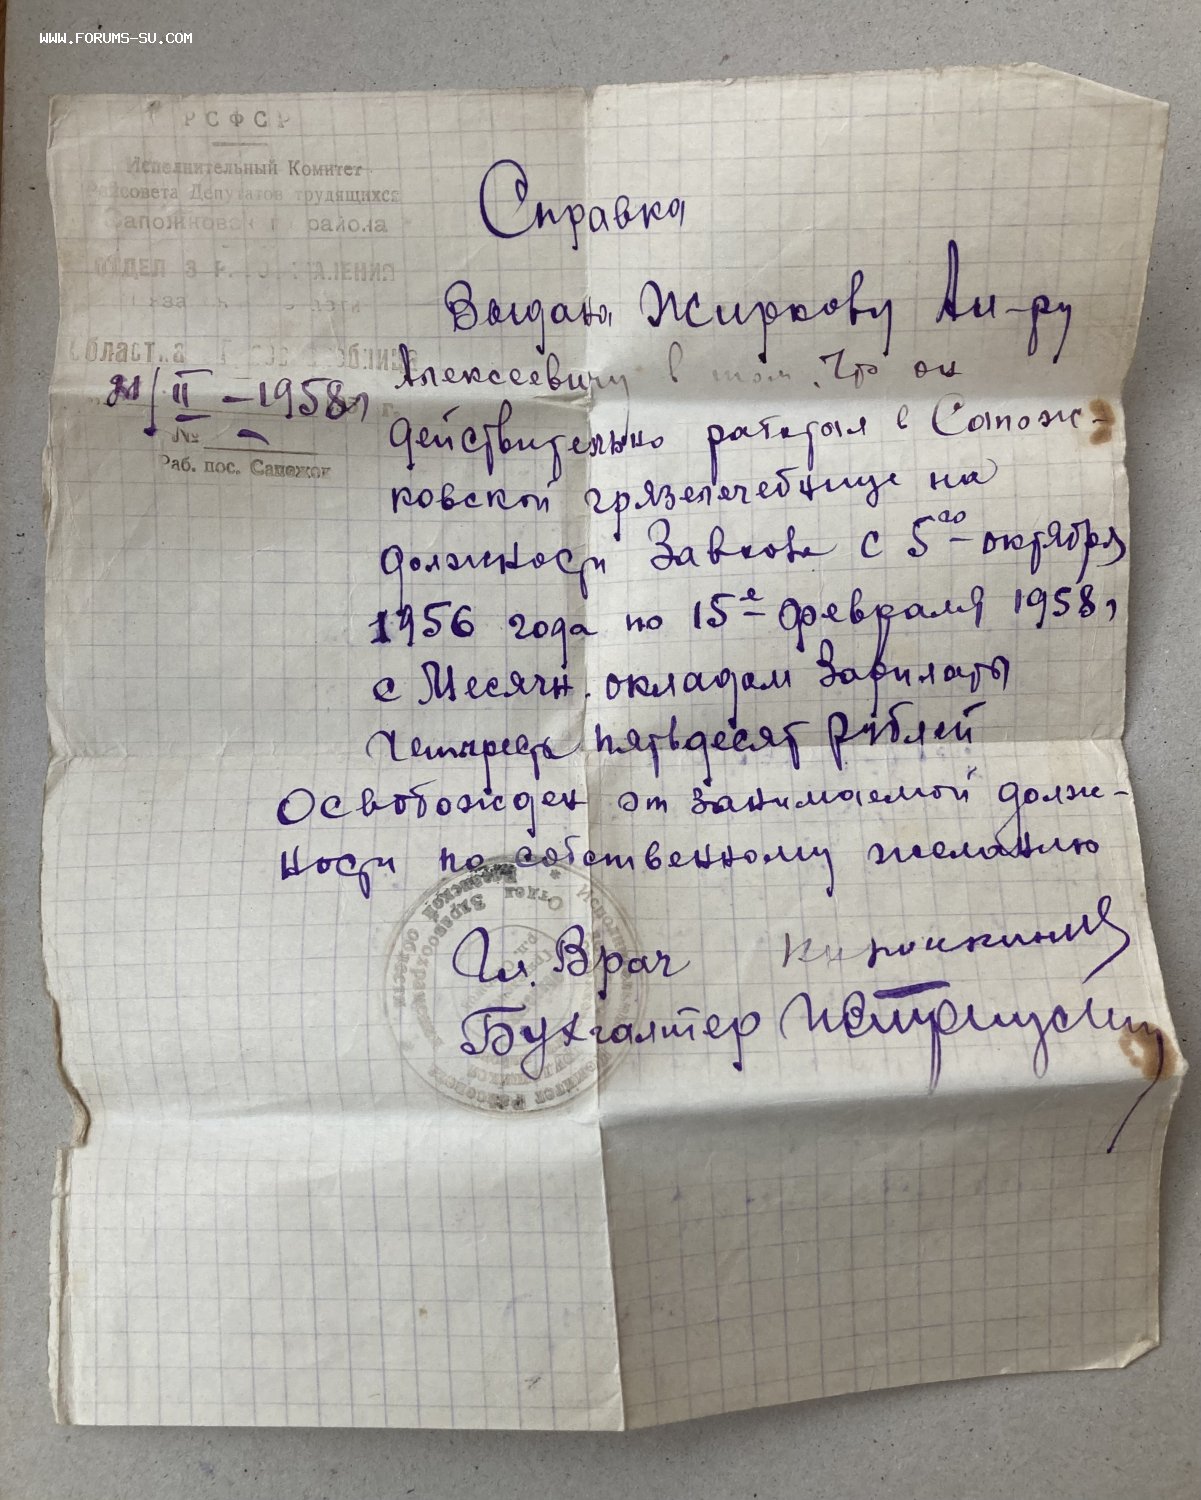 WWW.FORUMS-SU.COM
РСФСР
Исполнительный Комитет
Райсовета Депутатов трудящихся
Сапожковского района
ОТДЕЛ
21/II – 1958 г.
№ –
Раб. пос. Сапожок
Справка
Выдана Жиркову
Алексеевичу в том, что он
действительно работал в Сапож-
ковской грязелечебнице на
должности с 5го октября
1956 года по 15е февраля 1958 г
с Месячн. окладом Зарплаты
Четыреста пятьдесят рублей
Освобожден от занимаемой долж-
ности по собственному желанию
Гл. Врач
Бухгалтер
Отдел Здравоохранения
Рязанской области